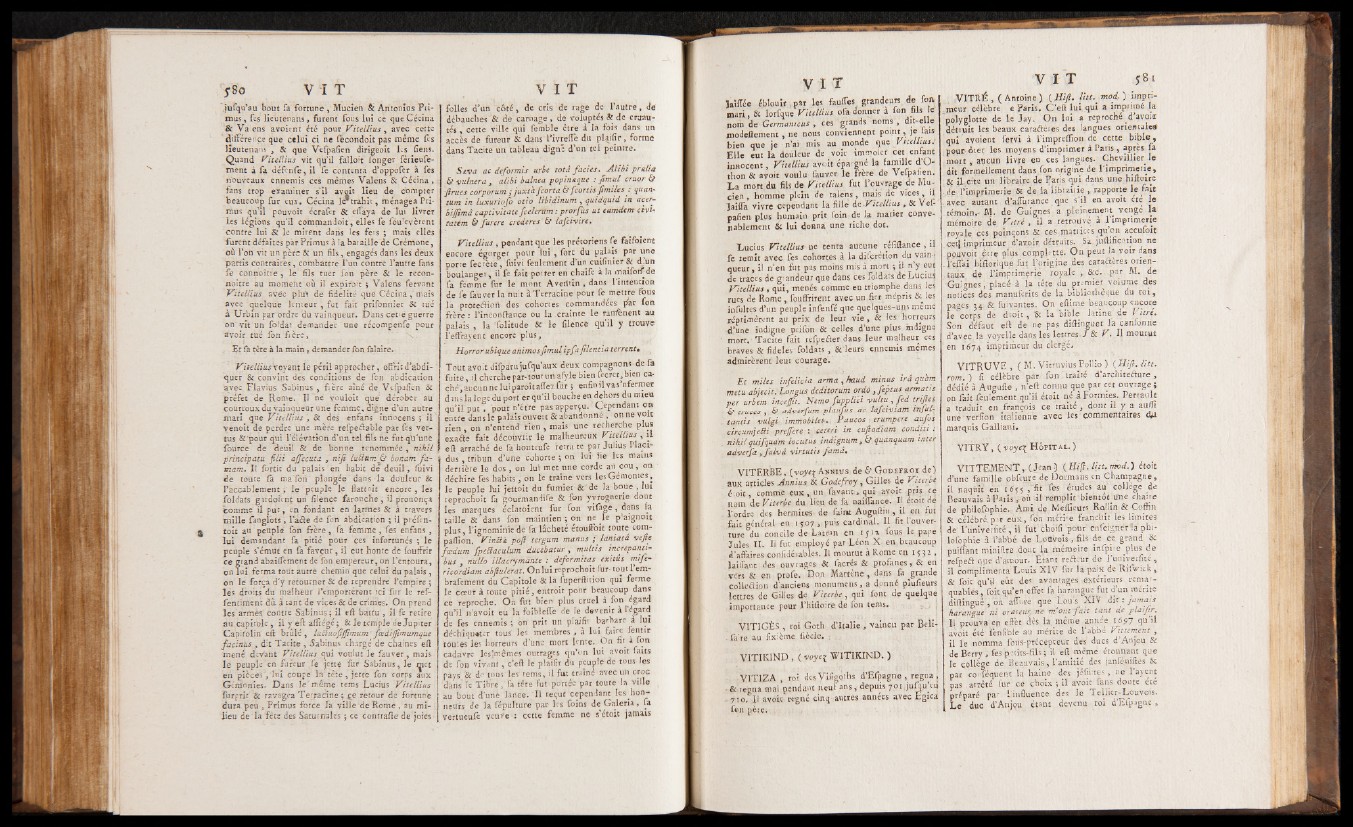 580 V I T
jusqu'au bout sa fortune, Mucien & Antonius Pri-
mus, ses lieutenans, furent sous lui ce que Cécina
& Valens avoient été pour Vitellius, avec cette
différence que celui ci ne secondoit pas même ses
lieutenans, & que Vespasien dirigeoit les siens.
Quand Vitellius vit qu'il falloit songer sérieuse-
ment à sa défense, il se contenta d'opposer à ses
nouveaux ennemis ces mêmes Valens & Cécina,
sans trop examiner s'il avoit lieu de compter
beaucoup sur eux. Cécina le trahit, ménagea Pri-
mus qu'il pouvoit écraser & essaya de lui livrer
les légions qu'il commandoit, elles se soulevèrent
contre lui & le mirent dans les fers ; mais elles
furent défaites par Primus à la bataille de Crémone,
où l'on vit un père & un fils, engagés dans les deux
partis contraires, combattre l'un contre l'autre sans
se connoître, le fils tuer son père & le recon-
noître au moment où il expiroit ; Valens servant
Vitellius avec plus de fidelité que Cécina, mais
avec quelque lenteur, fut fait prisonnier & tué
à Urbin par ordre du vainqueur. Dans cette guerre
on vit un soldat demander une récompense pour
avoir tué son frère,
Et sa tête à la main, demander son salaire.
Vitellius voyant le péril approcher, offrit d'abdi-
quer & convint des conditions de son abdication
avec Flavius Sabinus, frère aîné de Vespasien &
préfet de Rome. Il ne vouloit que dérober au
courroux du vainqueur une femme, digne d'un autre
mari que Vitellius, & des enfans innocens ; il
venoit de perdre une mère respectable par ses ver-
tus & pour qui l'élévation d'un tel fils ne fut qu'une
source de deuil & de bonne renommée, nihil
principatu filii assecuta, nisi luctum & bonam fa-
mam. Il sortit du palais en habit de deuil, suivi
de toute sa maison plongée dans la douleur &
l'accablement ; le peuple le flattoit encore, les
soldats gardoient un silence farouche, il prononça
comme il put, en fondant en larmes & à travers
mille sanglots, l'acte de son abdication ; il présen-
toit au peuple son frère, sa femme, ses enfans,
lui demandant sa pitié pour ces infortunés ; le
peuple s'émut en sa faveur, il eut honte de souffrir
ce grand abaissement de son empereur, on l'entoura,
on lui ferma tout autre chemin que celui du palais,
on le força d'y retourner & de reprendre l'empire ;
les droits du malheur l'emportèrent ici sur le res-
sentiment dû à tant de vices & de crimes. On prend
les armes contre Sabinus ; il est battu, il se retire
au capitole, il y est assiégé ; & le temple de Jupiter
Capitolin est brûlé, luctuosissimum fœdissimumque
facinus, dit Tacite, Sabinus chargé de chaînes est
mené devant Vitellius qui voulut le sauver, mais
le peuple en fureur se jette sur Sabinus, le met
en pièces, lui coupe la tête, jette son corps aux
Gémonies. Dans le même tems Lucius Vitellius
surprit & ravagea Terracine ; ce retour de fortune
dura peu, Primus force la ville de Rome, au mi-
lieu de la fête des Saturnales ; ce contraste de joies
V I T
folles d'un côté, de cris de rage de l'autre, de
débauches & de carnage, de voluptés & de cruau-
tés, cette ville qui semble être à la fois dans un
accès de fureur & dans l'ivresse du plaisir, forme
dans Tacite un tableau digne d'un tel peintre.
Sæva ac deformis urbe totâ facies. Alibi prælia
& vulnera, alibi balnea popinæque : simul cruor &
strues corporum ; juxtà scorta & scortis similes : quan-
tum in luxurioso otio libidinum, quidquid in acer-
bissimâ captivitate scelerum : prorsus ut eamdem civi-
tatem & furere crederes & lascivire.
Vitellius, pendant que les prétoriens se faisoient
encore égorger pour lui, sort du palais par une
porte secrète, suivi seulement d'un cuisinier & d'un
boulanger, il se fait porter en chaise à la maison de
sa femme sur le mont Aventin, dans l'intention
de se sauver la nuit à Terracine pour se mettre sous
la protection des cohortes commandées par son
frère : l'inconstance ou la crainte le ramènent au
palais, la solitude & le silence qu'il y trouve
l'effrayent encore plus,
Horror ubique animos simul ipsa silentia terrent.
Tout avoit disparu jusqu'aux deux compagnons de sa
fuite, il cherche par-tout un asyle bien secret, bien ca-
ché, aucun ne lui paroît assez sûr ; enfin il va s'enfermer
dans la loge du portier qu'il bouche en dehors du mieu
qu'il put, pour n'être pas apperçu. Cependant on
entre dans le palais ouvert & abandonné, on ne voit
rien, on n'entend rien, mais une recherche plus
exacte fait découvrir le malheureux Vitellius, il
est arraché de sa honteuse retraite par Julius Placi-
dus, tribun d'une cohorte ; on lui lie les mains
derrière le dos, on lui met une corde au cou, on
déchire ses habits, on le traîne vers les Gémonies,
le peuple lui jettoit du fumier & de la boue, lui
reprochoit sa gourmandise & son yvrognerie dont
les marques éclatoient sur son visage, dans sa
taille & dans son maintien ; on ne le plaignoit
plus, l'ignominie de sa lâcheté étouffoit toute com-
passion. Vinctæ post tergum manus ; laniatâ veste
fœdum spectaculum ducebatur, multis increpanti-
bus, nullo illacrymante : deformitas exitûs mise-
ricordiam abstulerat. On lui reprochoit sur-tout l'em-
brasement du Capitole & la superstition qui ferme
le cœur à toute pitié, entroit pour beaucoup dans
ce reproche. On fut bien plus cruel à son égard
qu'il n'avoit eu la foiblesse de le devenir à l'égard
de ses ennemis ; on prit un plaisir barbare à lui
déchiqueter tous les membres, à lui faire sentir
toutes les horreurs d'une mort lente. On fit à son
cadavre les mêmes outrages qu'on lui avoit faits
de son vivant, c'est le plaisir du peuple de tous les
pays & de tous les tems, il fut traîné avec un croc
dans le Tibre, sa tête fut portée par toute la ville
au bout d'une lance. Il reçut cependant les hon-
neurs de la sépulture par les soins de Galeria, sa
vertueuse veuve : cette femme ne s'étoit jamais
V I T
laissée éblouir par les fausses grandeurs de son
mari, & lorsque Vitellius osa donner à son fils le
nom de Germanicus, ces grands noms, dit-elle
modestement, ne nous conviennent point, je sais
bien que je n'ai mis au monde que Vitellius.
Elle eut la douleur de voir immoler cet enfant
innocent, Vitellius avoit épargné la famille d'O-
thon & avoit voulu sauver le frère de Vespasien.
La mort du fils de Vitellius fut l'ouvrage de Mu-
cien, homme plein de talens, mais de vices, il
laissa vivre cependant la fille de Vitellius, & Ves-
pasien plus humain prit soin de la marier conve-
nablement & lui donna une riche dot.
Lucius Vitellius ne tenta aucune résistance, il
se remit avec ses cohortes à la discrétion du vain-
queur, il n'en fut pas moins mis à mort ; il n'y eut
de traces de grandeur que dans ces soldats de Lucius
Vitellius, qui, menés comme en triomphe dans les
rues de Rome, souffrirent avec un fier mépris & les
insultes d'un peuple insensé que quelques-uns même
réprimèrent au prix de leur vie, & les horreurs
d'une indigne prison & celles d'une plus indigne
mort. Tacite fait respecter dans leur malheur ces
braves & fidèles soldats, & leurs ennemis mêmes
admirèrent leur courage.
Et miles infelicia arma, haud minus irâ quàm
metu abjecit. Longus deditorum ordo, septus armatis
per urbem incessit. Nemo supplici vultu, sed tristes
& truces, & adversum plausus ac lasciviam insul-
tantis vulgi immobiles. Paucos erumpere ausos
circumjecti pressere : ceteri in custodiam conditi :
nihil quisquam locutus indignum, & quanquam inter
adversa, salvâ virtutis famâ.
VITERBE, (voyez ANNIUS de & GODEFROI de)
aux articles Annius & Godefroy, Gilles de Viterbe
étoit, comme eux, un savant, qui avoit pris ce
nom de Viterbe du lieu de sa naissance. Il étoit de
l'ordre des hermites de saint Augustin, il en fut
fait général en 1507, puis cardinal. Il fit l'ouver-
ture du concile de Latran en 1512 sous le pape
Jules II. Il fut employé par Léon X en beaucoup
d'affaires considérables. Il mourut à Rome en 1532,
laissant des ouvrages & sacrés & profanes, & en
vers & en prose. Don Martène, dans sa grande
collection d'anciens monumens, a donné plusieurs
lettres de Gilles de Viterbe, qui sont de quelque
importance pour l'histoire de son tems.
VITIGÈS, roi Goth d'Italie, vaincu par Béli-
saire au sixième siècle.
VITIKIND, (voyez WITIKIND.)
VITIZA, roi des Visigoths d'Espagne, regna,
& regna mal pendant neuf ans, depuis 701 jusqu'en
710. Il avoit regné cinq autres années avec Egica
son père.
V I T 581
VITRÉ, (Antoine) (Hist. litt. mod.) impri-
meur célèbre de Paris. C'est lui qui a imprimé la
polyglotte de le Jay. On lui a reproché d'avoir
détruit les beaux caractères des langues orientales
qui avoient servi à l'impression de cette bible,
pour ôter les moyens d'imprimer à Paris, après sa
mort, aucun livre en ces langues. Chevillier le
dit formellement dans son origine de l'imprimerie,
& il cite un libraire de Paris qui dans une histoire
de l'imprimerie & de la librairie, rapporte le fait
avec autant d'assurance que s'il en avoit été le
témoin. M. de Guignes a pleinement vengé la
mémoire de Vitré, il a retrouvé à l'imprimerie
royale ces poinçons & ces matrices qu'on accusoit
cet imprimeur d'avoir détruits. Sa justification ne
pouvoit être plus complette. On peut la voir dans
l'essai historique sur l'origine des caractères orien-
taux de l'imprimerie royale, &c. par M. de
Guignes, placé à la tête du premier volume des
notices des manuscrits de la bibliothèque du roi,
pages 34 & suivantes. On estime beaucoup encore
le corps de droit, & la bible latine de Vitré.
Son défaut est de ne pas distinguer la consonne
d'avec la voyelle dans les lettres J & V. Il mourut
en 1674 imprimeur du clergé.
VITRUVE, (M. Vitruvius Pollio) (Hist. litt.
rom.) si célèbre par son traité d'architecture,
dédié à Auguste, n'est connu que par cet ouvrage ;
on sait seulement qu'il étoit né à Formies. Perrault
a traduit en françois ce traité, dont il y a aussi
une version italienne avec les commentaires du
marquis Galliani.
VITRY, (voyez HÔPITAL.)
VITTEMENT, (Jean) (Hist. litt. mod.) étoit
d'une famille obscure de Dormans en Champagne,
il naquit en 1655, fit ses études au collège de
Beauvais à Paris, où il remplit bientôt une chaire
de philosophie. Ami de Messieurs Rollin & Coffin
& célébré par eux, son mérite franchit les limites
de l'université, il fut choisi pour enseigner la phi-
losophie à l'abbé de Louvois, fils de ce grand &
puissant ministre dont la mémoire inspire plus de
respect que d'amour. Etant recteur de l'université,
il complimenta Louis XIV sur la paix de Riswick,
& soit qu'il eût des avantages extérieurs remar-
quables, soit qu'en effet sa harangue fut d'un mérite
distingué, on assure que Louis XIV dit : jamais
harangue ni orateur ne m'ont fait tant de plaisir.
Il prouva en effet dès la même année 1697 qu'il
avoit été sensible au mérite de l'abbé Vittement,
il le nomma sous-précepteur des ducs d'Anjou &
de Berry, ses petits-fils ; il est même étonnant que
le collège de Beauvais, l'amitié des jansénistes &
par conséquent la haine des jésuites, ne l'ayent
pas arrêté sur ce choix ; il avoit sans doute été
préparé par l'influence des le Tellier-Louvois.
Le duc d'Anjou étant devenu roi d'Espagne,